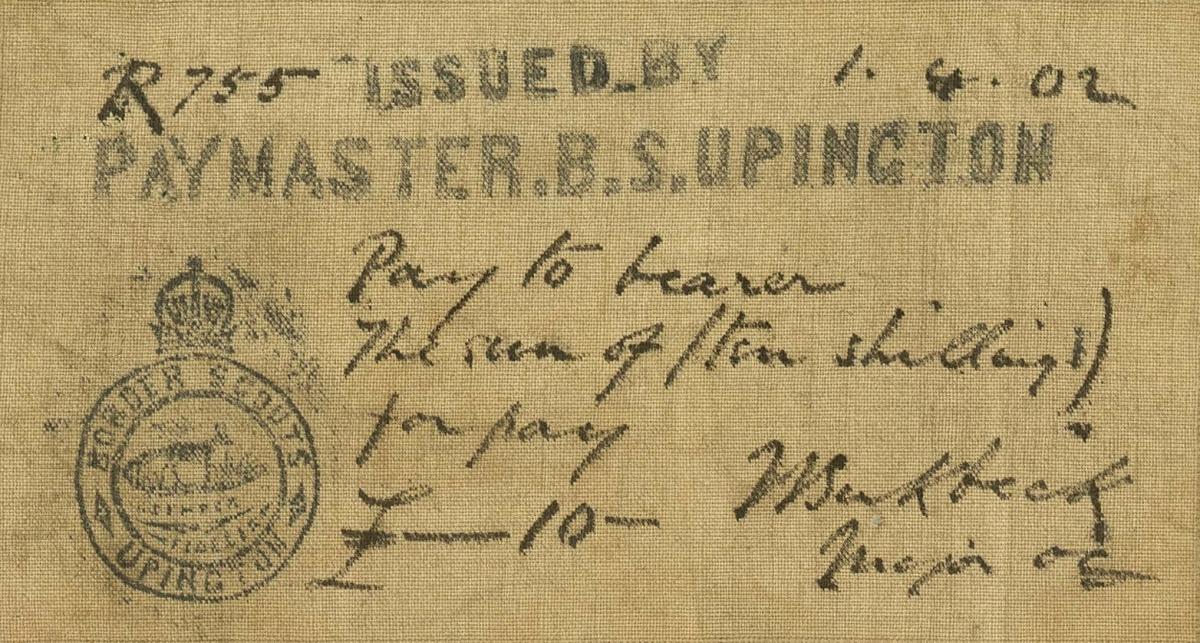 R 755 ISSUED.BY 1. 4. 02
PAYMASTER.B.S.UPINGTON
Pay to bearer
The sum of (ten shillings)
for pay
£ — 10 —
Major OC
BORDER SCOUTS
UPINGTON